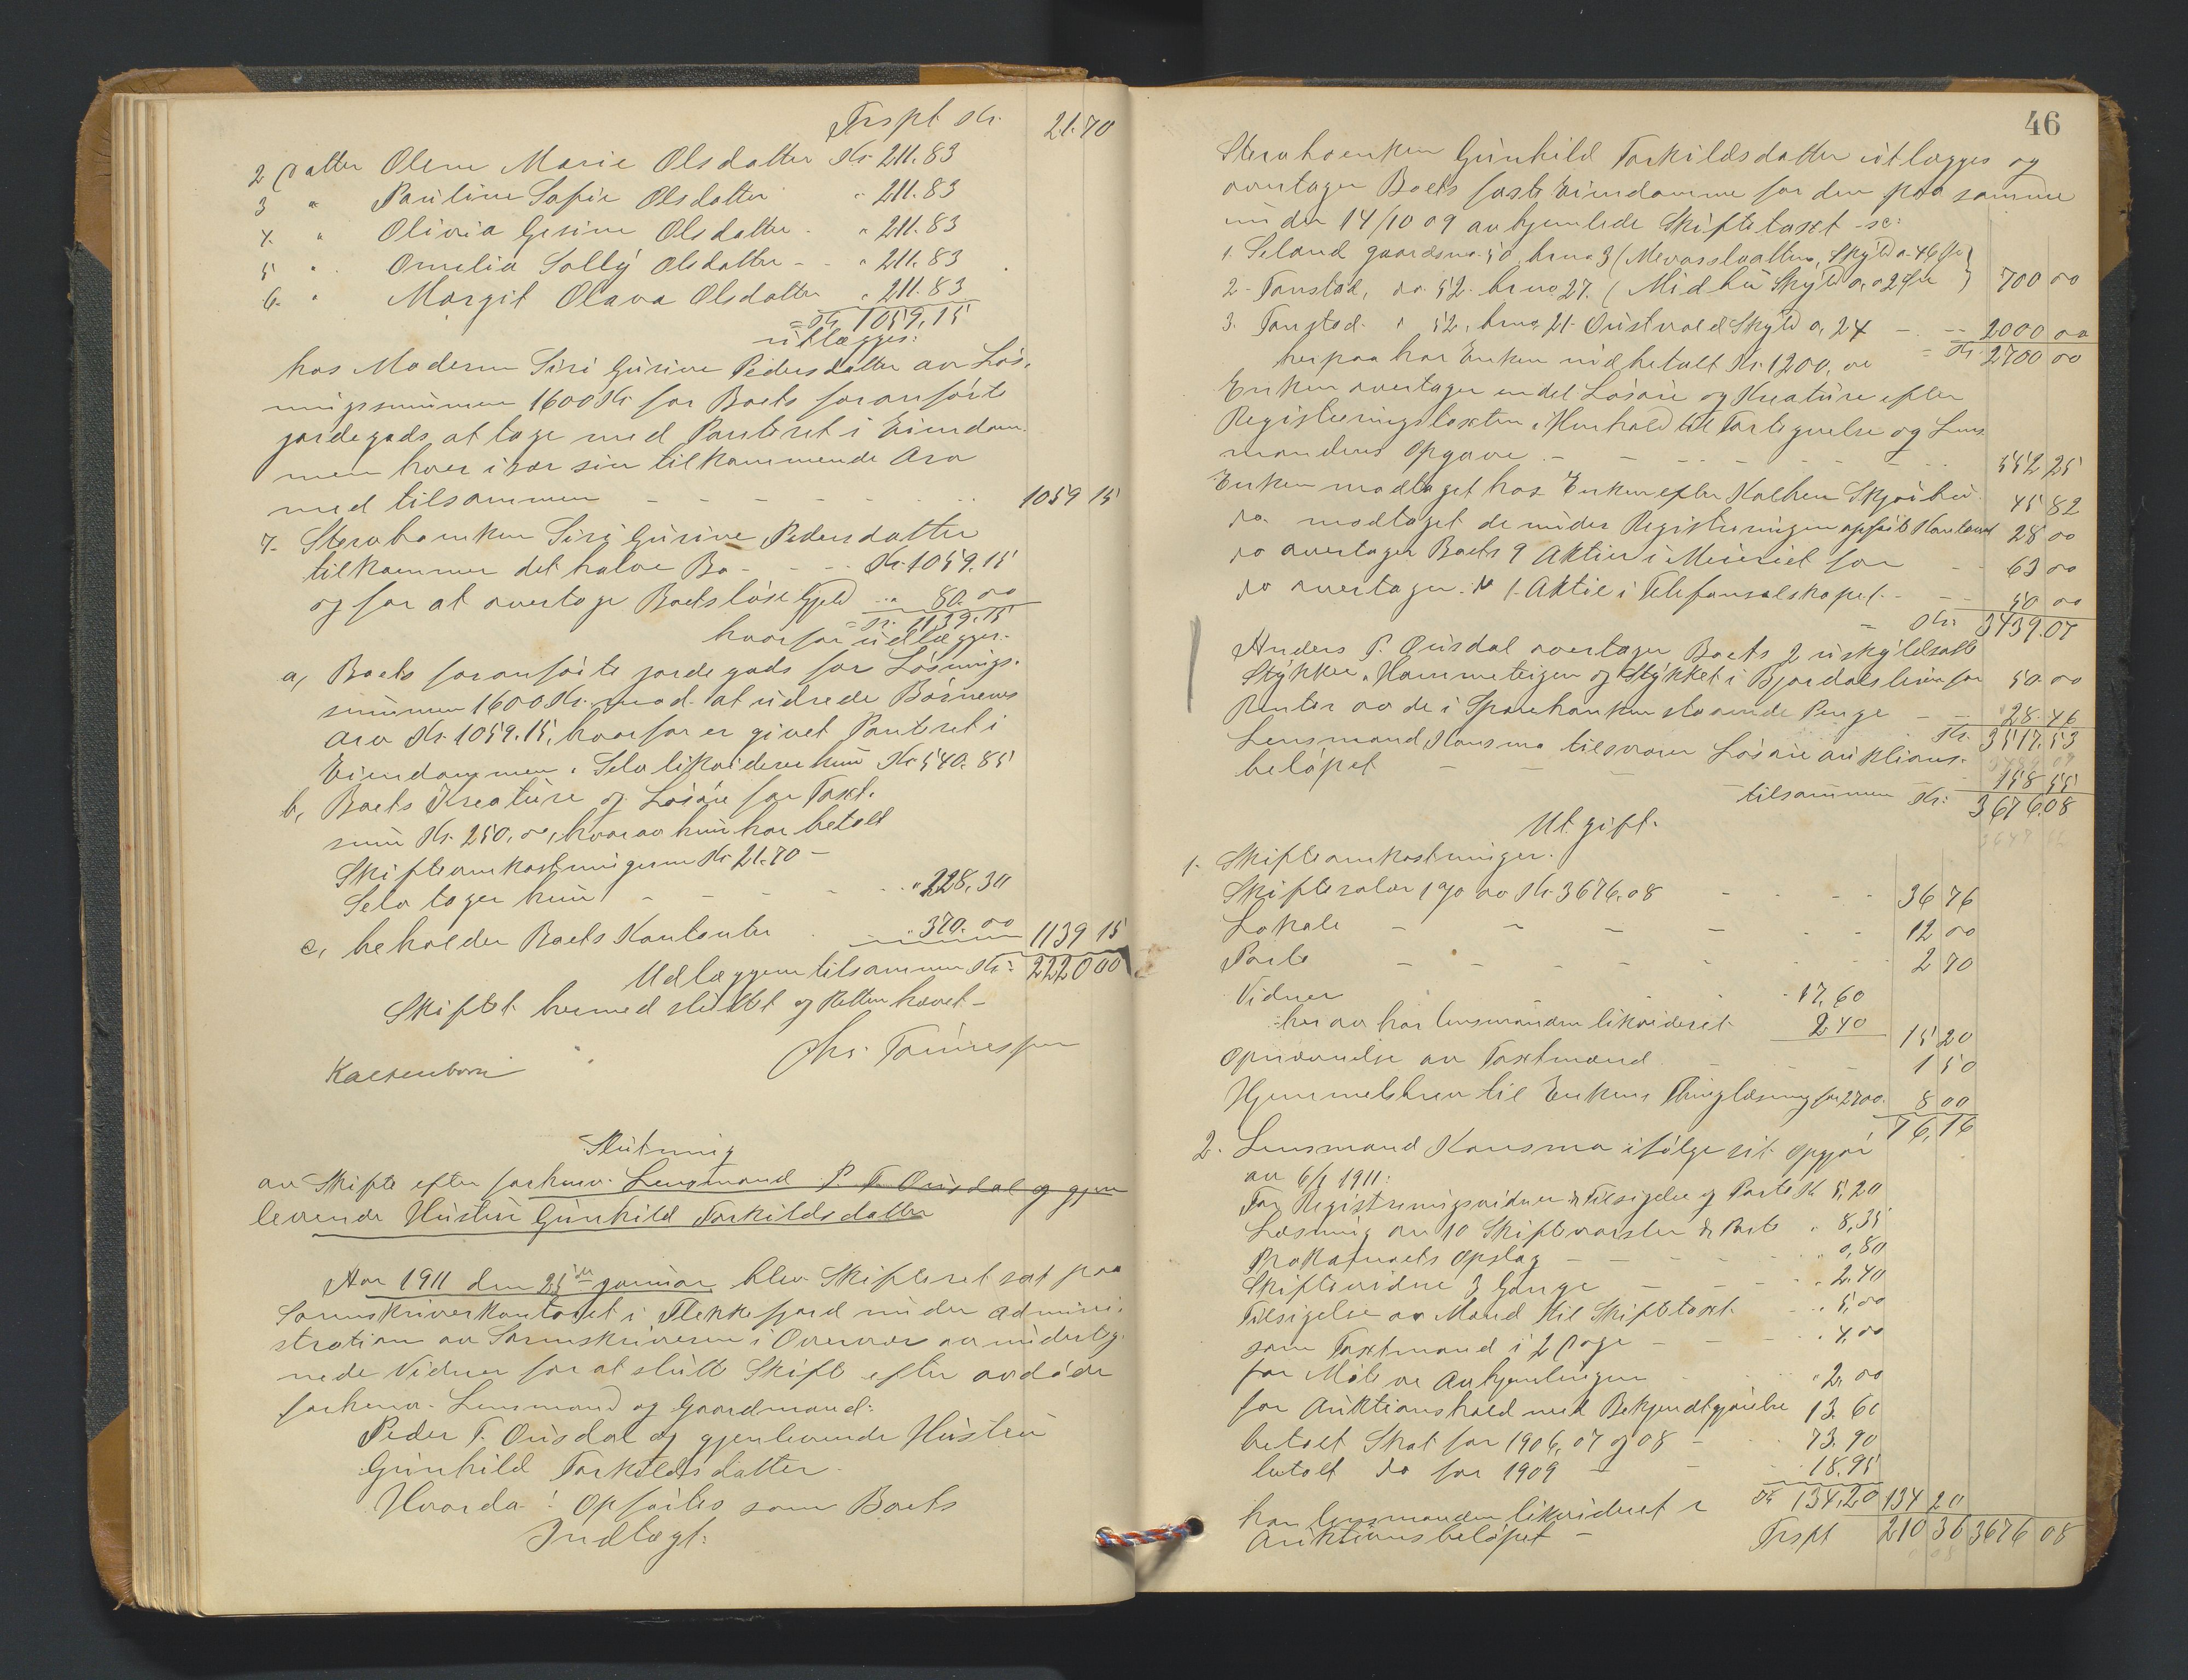 Trspt Kr. 21.70
2 Datter Olene Marie Olsdatter Kr. 211.83
3 " Pauline Sofie Olsdatter " 211.83
4. " Olivia Gesine Olsdatter - " 211.83
5 " Omelia Solly Olsdatter - - " 211.83
6. " Margit Olava Olsdatter " 211.83
= Kr. 1059.15
utlægges:
hos Moderen Siri Gurine Pedersdatter av Løs-
ningssummen 1600 Kr for Boets foranførte
jordegods at tage med Panteret i Eiendom-
men hver især sin tilkommende Arv
med tilsammen - - - - - 1059 15
7. Stervboenken Siri Gurine Pedersdatter
tilkommer det halve Bo - - - Kr. 1059.15
og for at overtage Boets løse Gjeld " 80.00
= Kr. 1139.15
hvorfor udlægges:
a, Boets foranførte jordegods for Løsnings-
summen 1600 Kr. mod at udrede Børnenes
Arv Kr. 1059.15, hvorfor er givet Panteret i
Eiendommen. Selv likviderer hun Kr 540.85
b, Boets Kreature og Løsøre for Taxt-
sum Kr. 250,00, hvorav hun har betalt
Skifteomkostningerne Kr 21.70 -
Selv tager hun - - - - " 228,30
c, beholder Boets Kontanter " 370.00 1139 15
Udlæggene tilsammen Kr: 2220 00
Skiftet hermed sluttet og Retten hævet -
Chr. Tønnessen
Kaltenborn
Slutning
av Skifte efter forhenv. Lensmand P. T. Ousdal og gjen
levende Hustru Gunhild Torkildsdatter
Aar 1911 den 25de januar blev Skifteret sat paa
Sorenskriverkontoret i Flekkefjord under Admini-
stration av Sorenskriveren i Overvær av underteg-
nede Vidner for at slutte Skifte efter avdøde
forhenv. Lensmand og Gaardmand:
Peder T. Ousdal og gjenlevende Hustru
Gunhild Torkildsdatter.
Hvorda: Opførtes som Boets
Indtægt:
46
Stervboenken Gunhild Torkildsdatter utlægges og
overtager Boets faste Eiendomme for den paa samme
under 14/10 09 avhjemlede Skiftetaxt - sc:
1. Seland gaardsno. 50 brno 3 (Mevasslaatten, Skyld 0.46 Øre)
2 - Tonstad, do. 52. brno. 27. (Midbø Skyld 0,02 Øre) 700 00
3. Tonstad. " 52, brno. 21. Oustvold Skyld 0,24 - - 2000 00
herpaa har Enken indbetalt Kr. 1200,00 = Kr. 2700 00
Enken overtager endel Løsøre og Kreature efter
Registreringstaxten i Henhold til Fortegnelse og Lens-
mandens Opgave - - - - 552 25
Enken modtaget hos Enken efter Kolben Skjørbu 45 82
do. modtaget de under Registreringen opførte Kontant 28 00
do overtager Boets 9 Aktier i Meieriet for - - 63 00
do overtager do 1 Aktie i Telefonselskapet - - - 50 00
= Kr. 3439.07
Anders P. Ousdal overtager Boets 2 uskyldsatte
Stykker, Hammeteigen og Stykket i Bjordalslien for 50.00
Renter av de i Sparebanken staaende Penge - - " 28.46
Kr. 3517,53
Lensmand Konsmo tilsvarer Løsøre auktions-
beløpet - - - 158 55
tilsammen Kr: 3676.08
Utgift.
1. Skifteomkostninger.
Skiftesalær 1% av Kr. 3676.08 - - - - 36 76
Lokale - - - - - - 12 00
Porto - - - - - - - 2 70
Vidner - - - - 17,60
herav har lensmanden likvideret 2 40 15 20
Opnævnelse av Taxtmænd - - - 1 50
Hjemmelsbrev til Enkens Thinglæsning for 2700 8 00
76,16
2. Lensmand Konsmo ifølge sit Opgjør
av 6/1 1911:
For Registreringsvidner & Tilsigelse og Porto Kr 5,20
Læsning av 10 Skiftevarsler & Porto " 8,35
Proklamaets Opslag - - - - " 0,80
Skiftevidne 3 Gange - - - " 2.40
Tilsigelse av Mænd til Skiftetaxt - " 5,00
som Taxtmand i 2 Dage - - - " 4,00
for Møte ve Avhjemlingen - " 2,00
for Auktionshold med Bekjendtgjørelse 13.60
betalt Skat for 1906, 07 og 08 - - 73.90
betalt do for 1909 - - 18.95
har lensmanden likvideret i Kr 134,20 134 20
Auktionsbeløpet - Trspt 210 36 3676 08